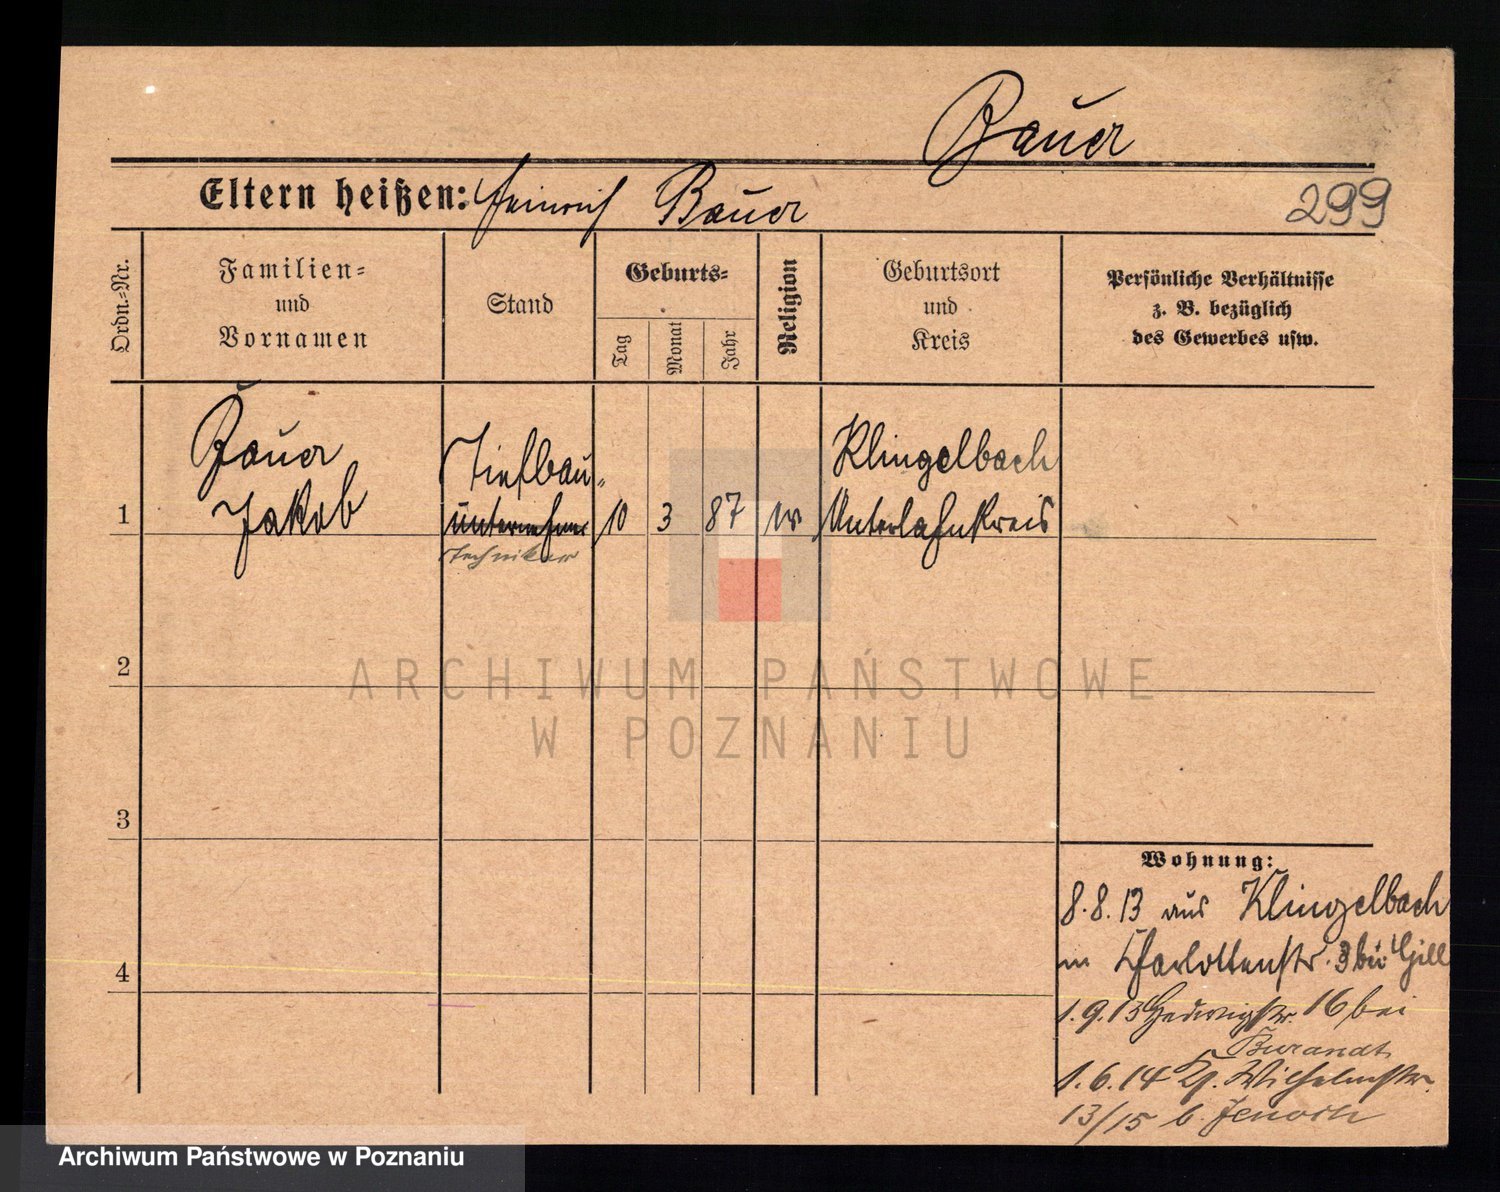 Bauer
Eltern heißen: Heinrich Bauer
299
Ordn.-Nr.
Familien-
und
Vornamen
Stand
Geburts-
Tag
Monat
Jahr
Religion
Geburtsort
und
Kreis
Persönliche Verhältnisse
z. B. bezüglich
des Gewerbes usw.
Bauer
Jakob
Tiefbau-
unternehmer
Techniker
1
10
3
87
Klingelbach
Unterlahnkreis
2
3
4
Wohnung:
8.8.13 aus Klingelbach
in Charlottenstr. 3 bei Gill
1.9.13 Hedwigstr. 16 bei
Burandt
1.6.14 Wilhelmstr.
13/15 b.
ARCHIWUM PAŃSTWOWE
W POZNANIU
Archiwum Państwowe w Poznaniu